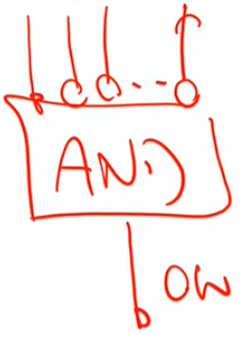 AND
OW